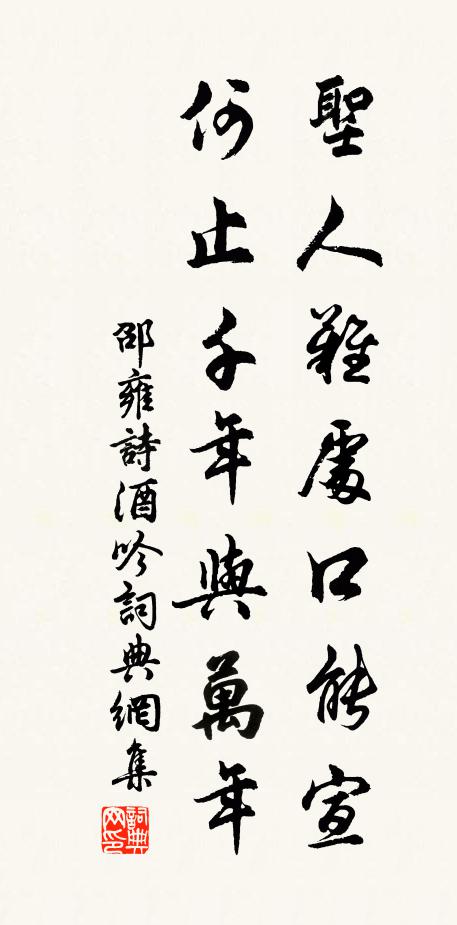 聖人難處口能宣
何止千年與萬年
邵雍詩酒吟詞典網集
詞典网印